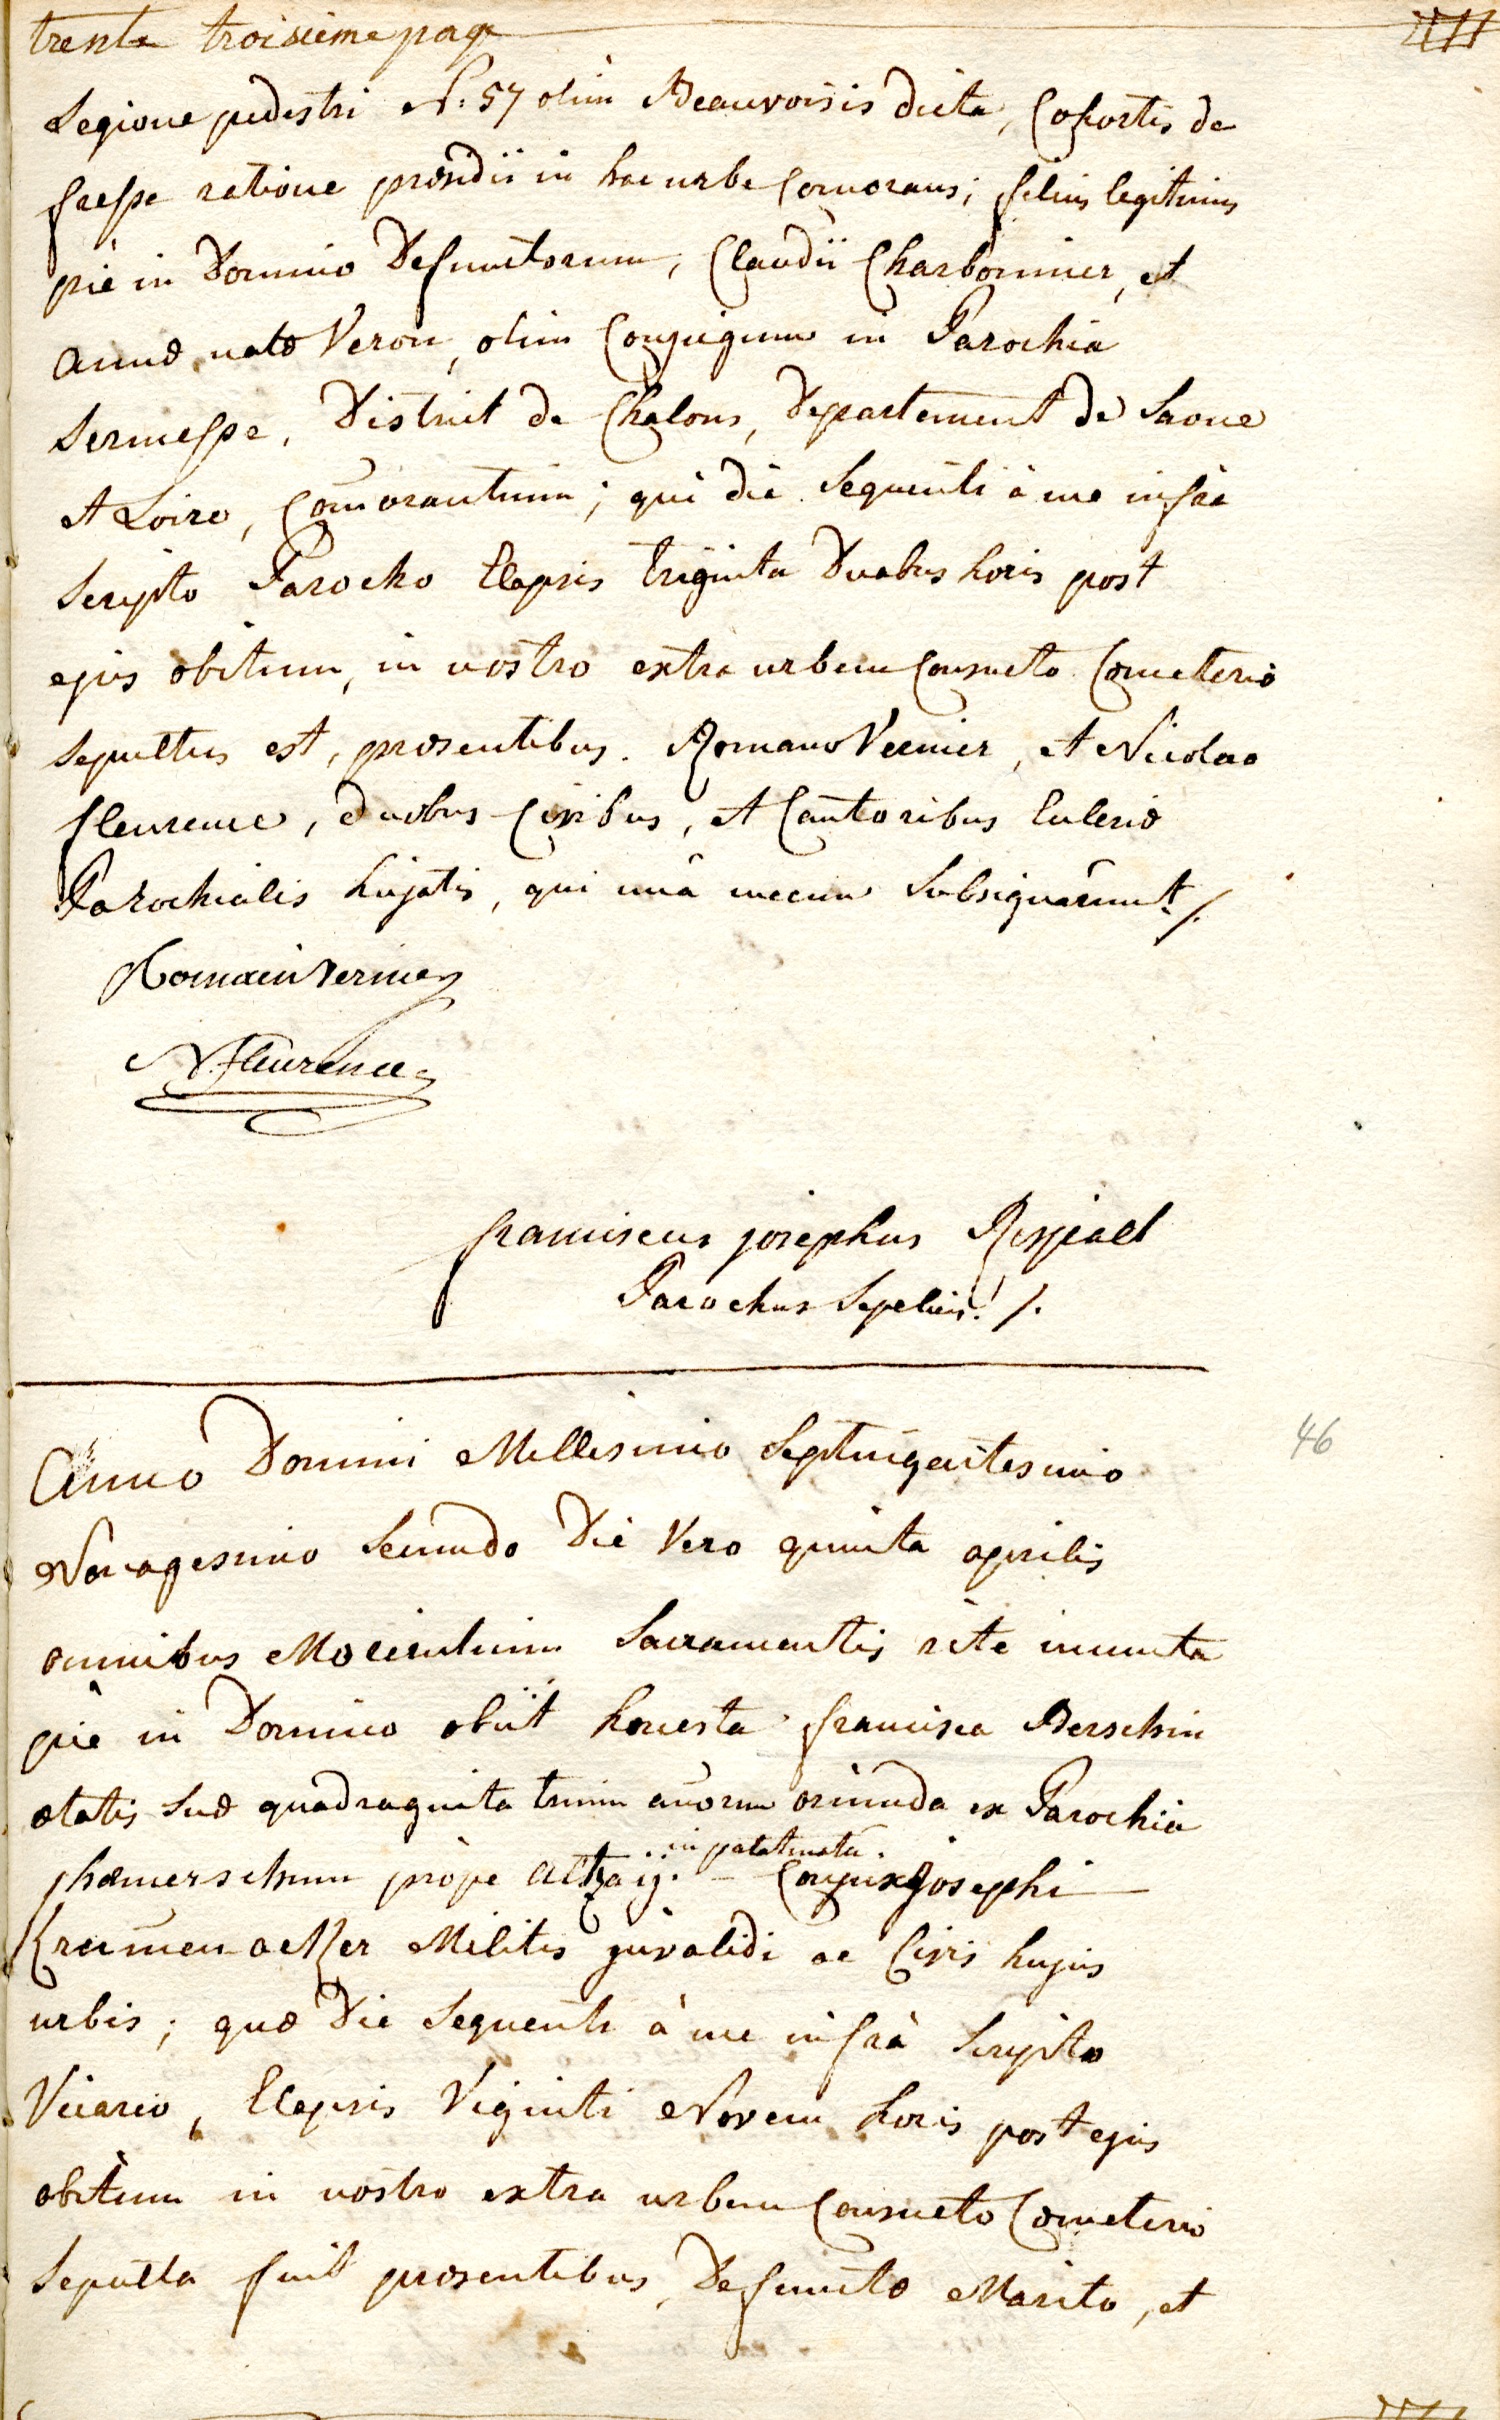 trente troisieme page
Legione pedestri N: 57 olim Beauvoisis dicta, Cohortis de
fresse ratione præsidii in hac urbe Comorans; filius legitimus
piè in Domino Defunctorum, Claudii Charbonnier, et
annæ natæ Veron, olim Conjugum in Parochia
Sermesse, District de Chalons, Departement de Saone
et Loire, Com̄orantium; qui die sequenti à me infrà
Scripto Parocho Elapsis triginta Duabus horis post
ejus obitum, in nostro extra urbem Consueto Cœmeterio
Sepultus est, præsentibus. Romano Vernier, et Nicolao
fleurence, duobus Civibus, et Cantoribus Ecclesiæ
Parochialis hujatis, qui unà mecum Subsignârunt ./.
Romain Vernier
N. fleurence
franciscus josephus
Parochus Sepeliens! ./.
46
Anno Domini Millesimo Septingentesimo
Nonagesimo Secundo Die Vero quinta aprilis
omnibus Morientium Sacramentis rite munita
piè in Domino obiit honesta francisca Berschin
ætatis suæ quadraginta trium an̄orum oriunda ex Parochiâ
phæmerschum prope altzaij. in palatinatu. Conjux Josephi
Krum̄enacker Militis invalidi ac Civis hujus
urbis; quæ Die Sequenti à me infrà Scripto
Vicario, Elapsis Viginti Novem horis post ejus
obitum in nostro extra urbem Consueto Cœmeterio
Sepulta fuit præsentibus, Defunctæ Marito, et